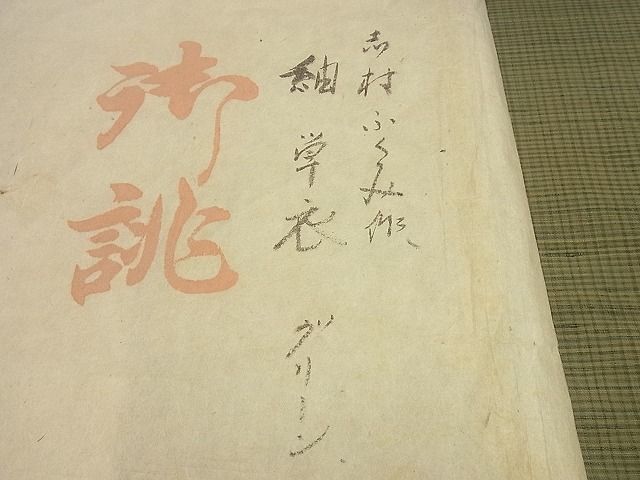 志村ふくみ作
紬単衣 グリーン
御誂